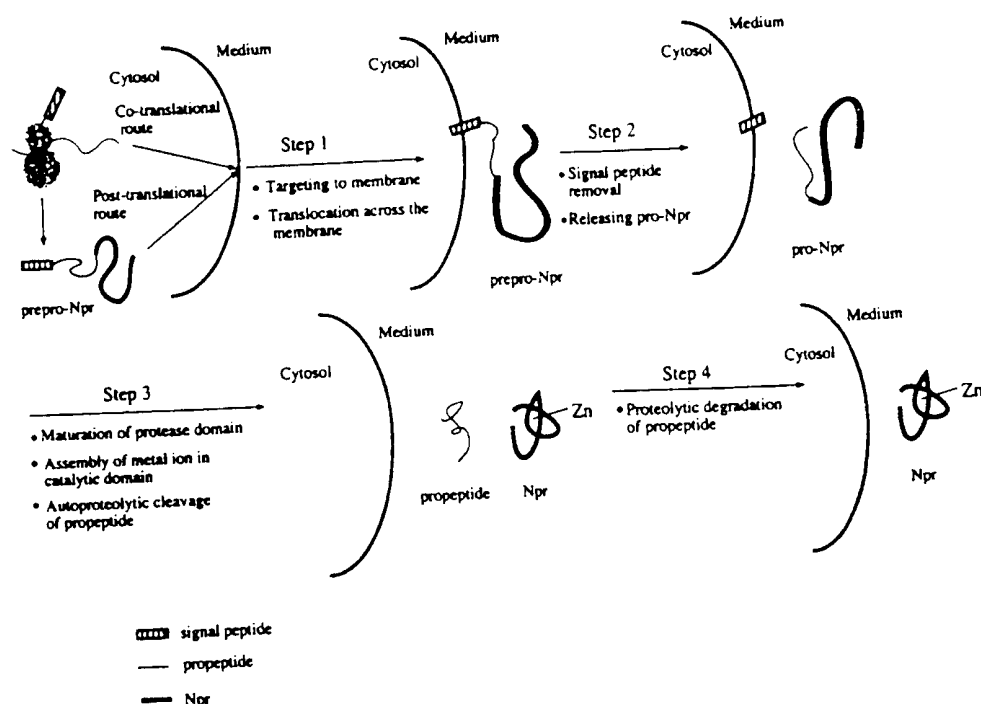 Cytosol
Medium
Co-translational
route
Post-translational
route
prepro-Npr
Step 1
• Targeting to membrane
• Translocation across the
membrane
Cytosol
Medium
prepro-Npr
Step 2
• Signal peptide
removal
• Releasing pro-Npr
Cytosol
Medium
pro-Npr
Step 3
• Maturation of protease domain
• Assembly of metal ion in
catalytic domain
• Autoproteolytic cleavage
of propeptide
Cytosol
Medium
Zn
propeptide
Npr
Step 4
• Proteolytic degradation
of propeptide
Cytosol
Medium
Zn
Npr
signal peptide
propeptide
Npr